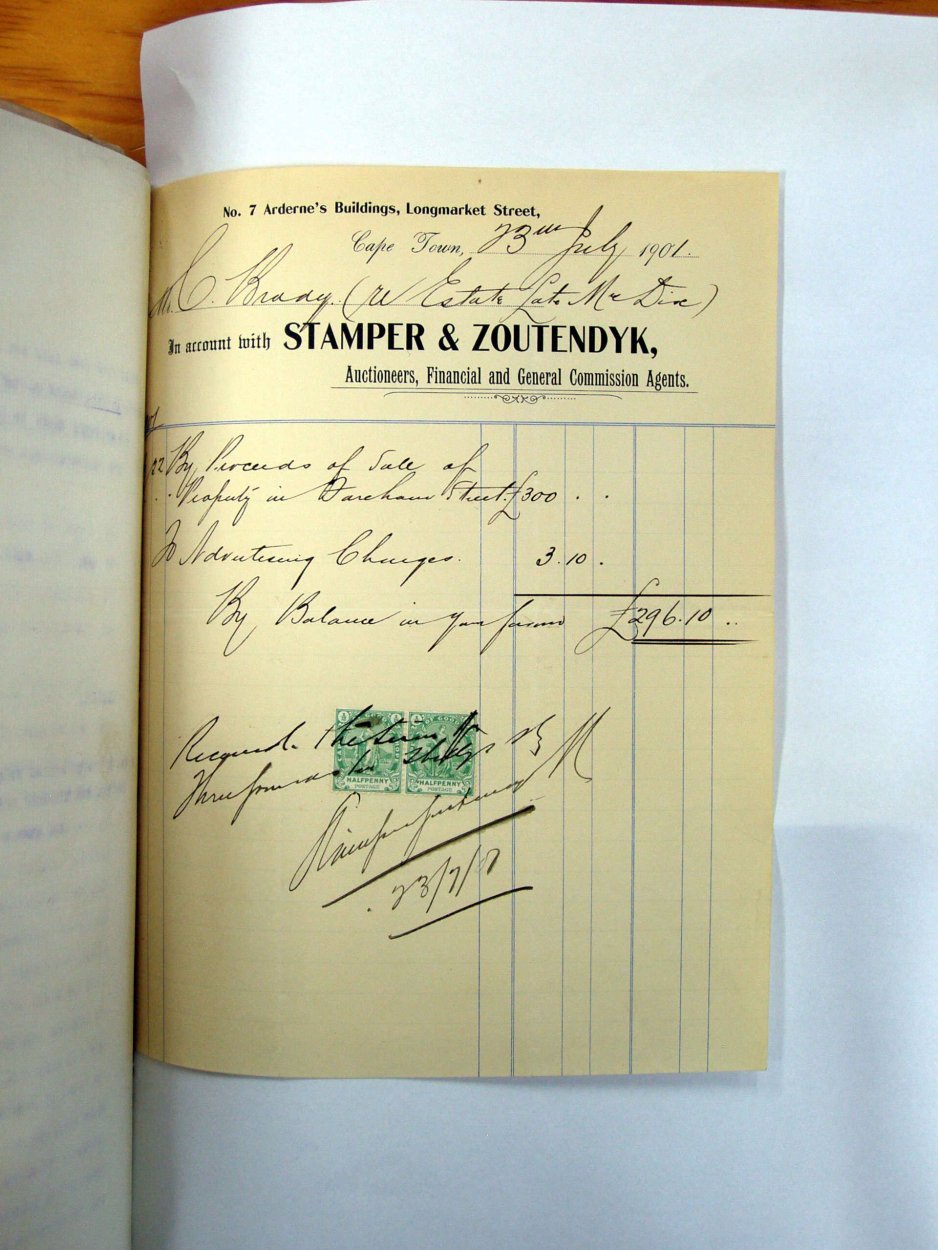 No. 7 Arderne's Buildings, Longmarket Street,
Cape Town, 23rd July 1901.
Mr. C. Brady. (re Estate Late Mr Dix)
In account with STAMPER & ZOUTENDYK,
Auctioneers, Financial and General Commission Agents.
22 By Proceeds of Sale of
Property in Street. £300 . .
To Advertising Charges. 3.10 .
By Balance in your favour £296.10 ..
Received the sum of
Three pounds ten shillgs
HALFPENNY HALFPENNY
POSTAGE POSTAGE
23/7/01